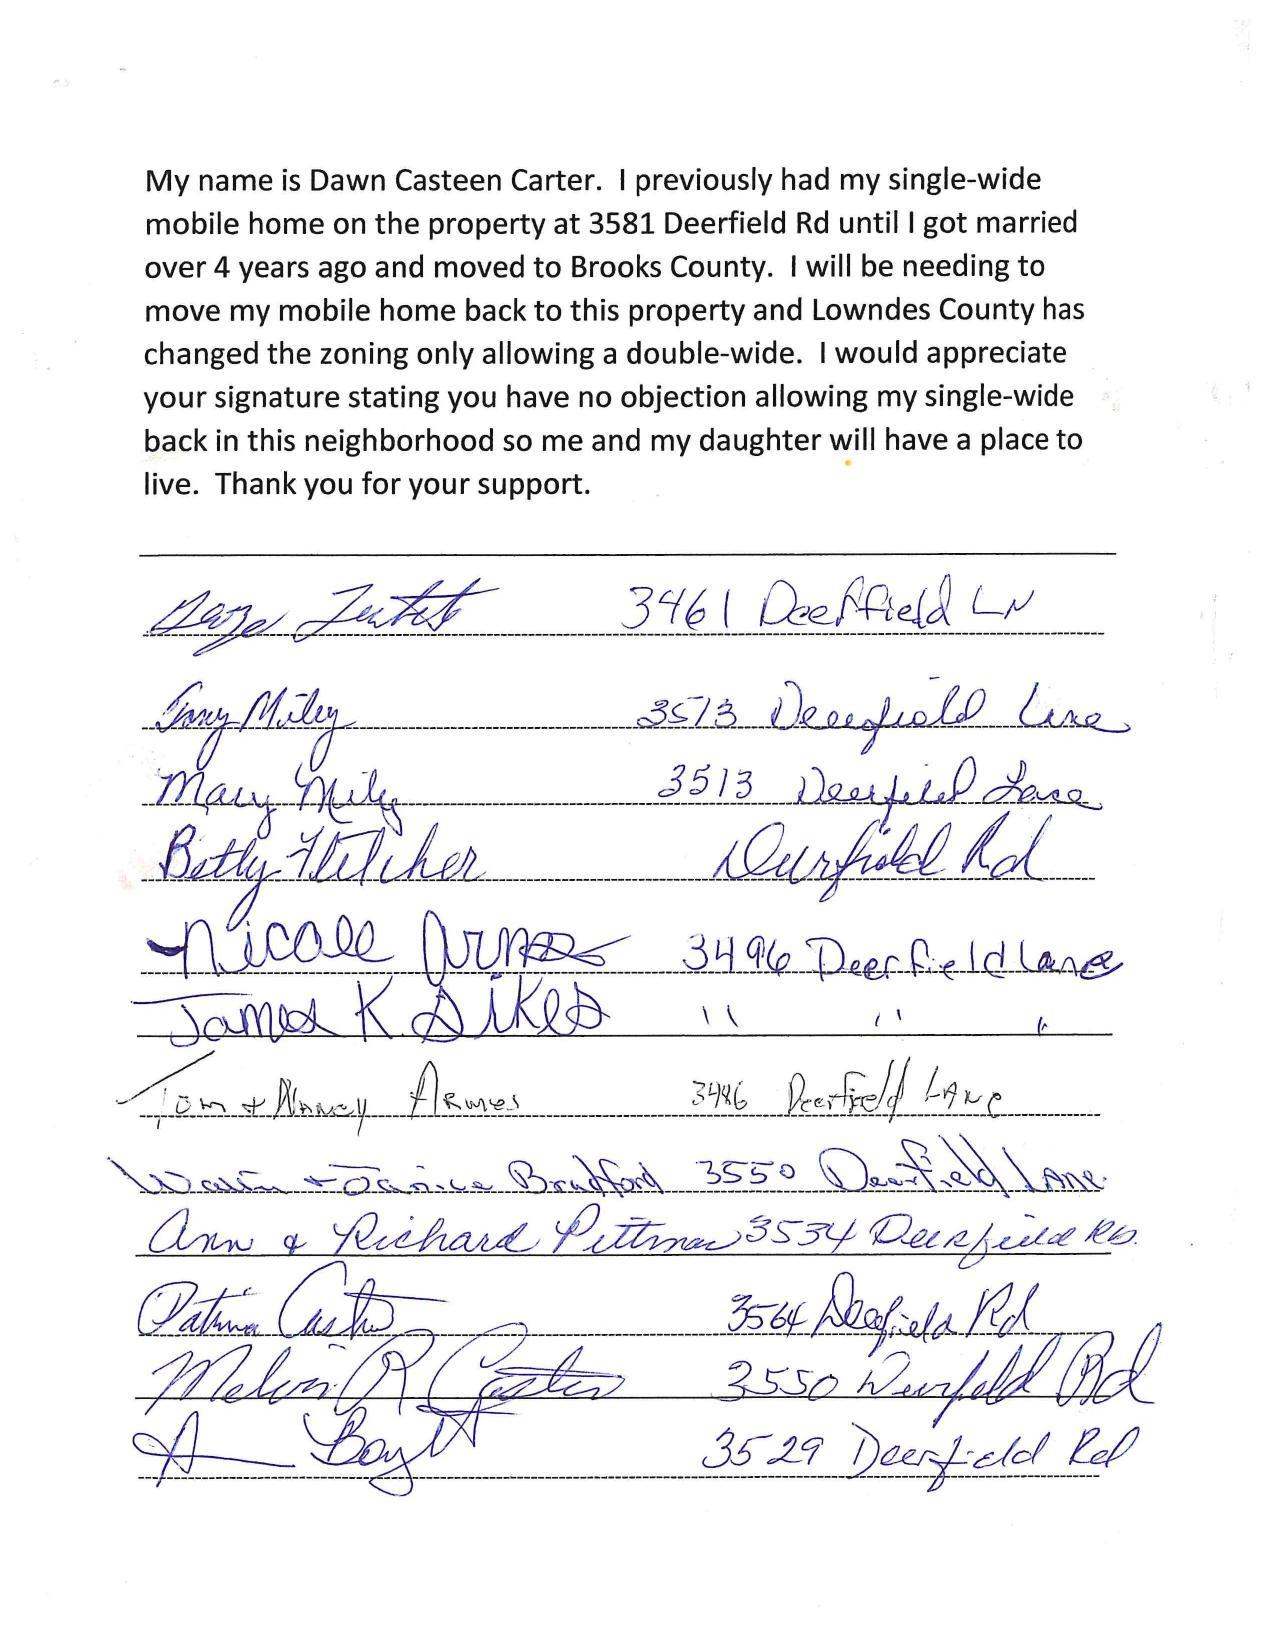 My name is Dawn Casteen Carter. I previously had my single-wide
mobile home on the property at 3581 Deerfield Rd until I got married
over 4 years ago and moved to Brooks County. I will be needing to
move my mobile home back to this property and Lowndes County has
changed the zoning only allowing a double-wide. I would appreciate
your signature stating you have no objection allowing my single-wide
back in this neighborhood so me and my daughter will have a place to
live. Thank you for your support.
3461 Deerfield LN
Miley 3513 Deerfield Lane
Mary Miley 3513 Deerfield Lane
Betty Fletcher Deerfield Rd
Nicole 3496 Deerfield Lane
James K. Sikes " " "
Tom & Nancy Armes 3486 Deerfield LANE
& Janice Bradford 3550 Deerfield LANE
Ann & Richard Pittman 3534 Deerfield Rd.
Patricia 3564 Deerfield Rd
Melvin R Casteen 3550 Deerfield Rd
3529 Deerfield Rd